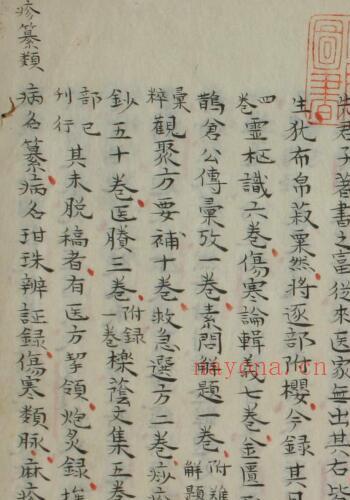 君子著書之富從來医家無出其右皆
生犹布帛菽粟然将逐部附櫻今録其
四卷靈枢識六卷傷寒論輯義七卷金匱
鵲倉公傳彙攷一卷素問解題一卷附難解題
彙粹觀聚方要補十卷救急選方二卷
鈔五十卷医賸三卷附録一卷櫟蔭文集五卷
部已刊行其未脱稿者有医方挈領炮炙録
疹纂類病名纂病名拑珠辨証録傷寒類脉麻疹
圖書
nayona.cn